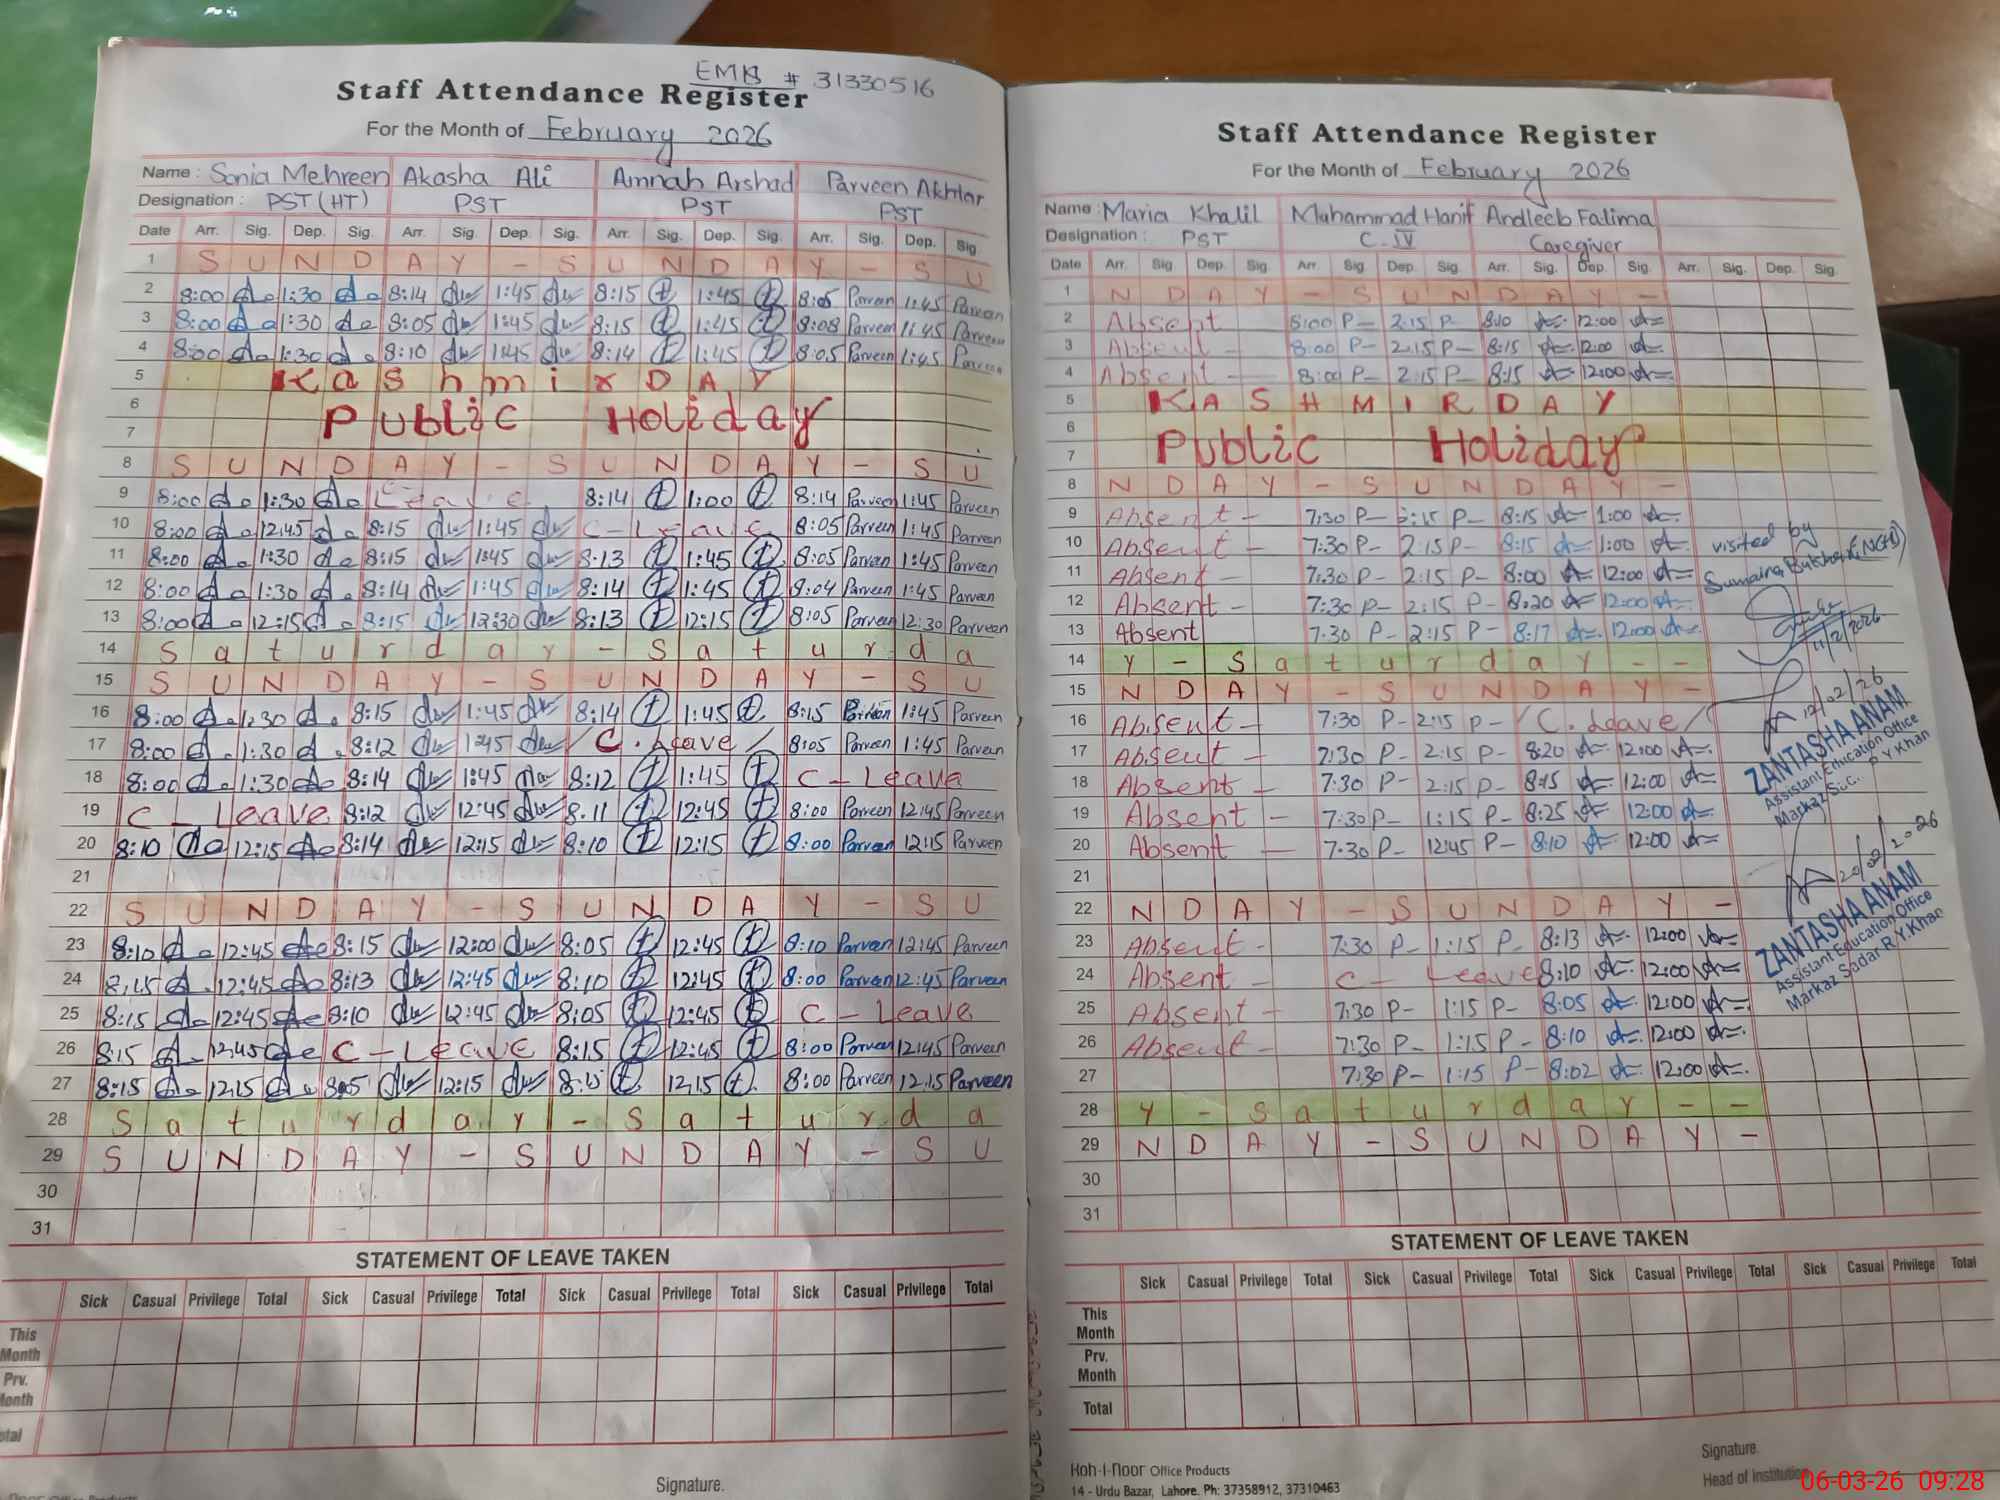 EMIS # 31330516
Staff Attendance Register
For the Month of February 2026
Name : Sonia Mehreen Akasha Ali Amnah Arshad Parveen Akhtar
Designation : PST (HT) PST PST PST
Date Arr. Sig. Dep. Sig. Arr. Sig. Dep. Sig. Arr. Sig. Dep. Sig. Arr. Sig. Dep. Sig.
1 S U N D A Y - S U N D A Y - S U
2 8:00 1:30 8:14 1:45 8:15 1:45 8:05 Parveen 1:45 Parveen
3 8:00 1:30 8:05 1:45 8:15 1:45 8:08 Parveen 1:45 Parveen
4 8:00 1:30 8:10 1:45 8:14 1:45 8:05 Parveen 1:45 Parveen
5 Kashmir DAY
6 Public Holiday
7
8 S U N D A Y - S U N D A Y - S U
9 8:00 1:30 Leave 8:14 1:00 8:14 Parveen 1:45 Parveen
10 8:00 12:45 8:15 1:45 C - Leave 8:05 Parveen 1:45 Parveen
11 8:00 1:30 8:15 1:45 8:13 1:45 8:05 Parveen 1:45 Parveen
12 8:00 1:30 8:14 1:45 8:14 1:45 8:04 Parveen 1:45 Parveen
13 8:00 12:15 8:15 12:30 8:13 12:15 8:05 Parveen 12:30 Parveen
14 S a t u r d a y - S a t u r d a
15 S U N D A Y - S U N D A Y - S U
16 8:00 1:30 8:15 1:45 8:14 1:45 8:15 Parveen 1:45 Parveen
17 8:00 1:30 8:12 1:45 / C. Leave / 8:05 Parveen 1:45 Parveen
18 8:00 1:30 8:14 1:45 8:12 1:45 C - Leave
19 C - Leave 8:12 12:45 8:11 12:45 8:00 Parveen 12:45 Parveen
20 8:10 12:15 8:14 12:15 8:10 12:15 8:00 Parveen 12:15 Parveen
21
22 S U N D A Y - S U N D A Y - S U
23 8:10 12:45 8:15 12:00 8:05 12:45 8:10 Parveen 12:45 Parveen
24 8:15 12:45 8:13 12:45 8:10 12:45 8:00 Parveen 12:45 Parveen
25 8:15 12:45 8:10 12:45 8:05 12:45 C - Leave
26 8:15 12:45 C - Leave 8:15 12:45 8:00 Parveen 12:45 Parveen
27 8:15 12:15 8:05 12:15 12:15 8:00 Parveen 12:15 Parveen
28 S a t u r d a y - S a t u r d a
29 S U N D A Y - S U N D A Y - S U
30
31
STATEMENT OF LEAVE TAKEN
Sick Casual Privilege Total Sick Casual Privilege Total Sick Casual Privilege Total Sick Casual Privilege Total
This Month
Prv. Month
Signature.
Staff Attendance Register
For the Month of February 2026
Name : Maria Khalil Muhammad Hanif Andleeb Fatima
Designation : PST C.IV Caregiver
Date Arr. Sig Dep. Sig. Arr. Sig Dep. Sig Arr. Sig. Dep. Sig. Arr. Sig. Dep. Sig.
1 N D A Y - S U N D A Y -
2 Absent 8:00 P- 2:15 P- 8:10 12:00
3 Absent 8:00 P- 2:15 P- 8:15 12:00
4 Absent 8:00 P- 2:15 P- 8:15 12:00
5 KASHMIR DAY
6 Public Holiday
7
8 N D A Y - S U N D A Y -
9 Absent - 7:30 P- 2:15 P- 8:15 1:00
10 Absent - 7:30 P- 2:15 P- 8:15 1:00
11 Absent - 7:30 P- 2:15 P- 8:00 12:00
12 Absent - 7:30 P- 2:15 P- 8:20 12:00
13 Absent 7:30 P- 2:15 P- 8:17 12:00
14 y - S a t u r d a y - -
15 N D A Y - S U N D A Y -
16 Absent - 7:30 P- 2:15 P- / C. Leave /
17 Absent - 7:30 P- 2:15 P- 8:20 12:00
18 Absent - 7:30 P- 2:15 P- 8:15 12:00
19 Absent - 7:30 P- 1:15 P- 8:25 12:00
20 Absent - 7:30 P- 12:45 P- 8:10 12:00
21
22 N D A Y - S U N D A Y -
23 Absent - 7:30 P- 1:15 P- 8:13 12:00
24 Absent - C - Leave 8:10 12:00
25 Absent - 7:30 P- 1:15 P- 8:05 12:00
26 Absent - 7:30 P- 1:15 P- 8:10 12:00
27 7:30 P- 1:15 P- 8:02 12:00
28 y - S a t u r d a y - -
29 N D A Y - S U N D A Y -
30
31
visited by
11/2/2026
12/02/26
ZANTASHA ANAM
Assistant Education Office
20/02/2026
ZANTASHA ANAM
Assistant Education Office
Markaz Sadar R.Y.Khan
STATEMENT OF LEAVE TAKEN
Sick Casual Privilege Total Sick Casual Privilege Total Sick Casual Privilege Total Sick Casual Privilege Total
This Month
Prv. Month
Total
Koh-I-Noor Office Products
14 - Urdu Bazar, Lahore. Ph: 37358912, 37310463
Signature.
Head of Institution
06-03-26 09:28